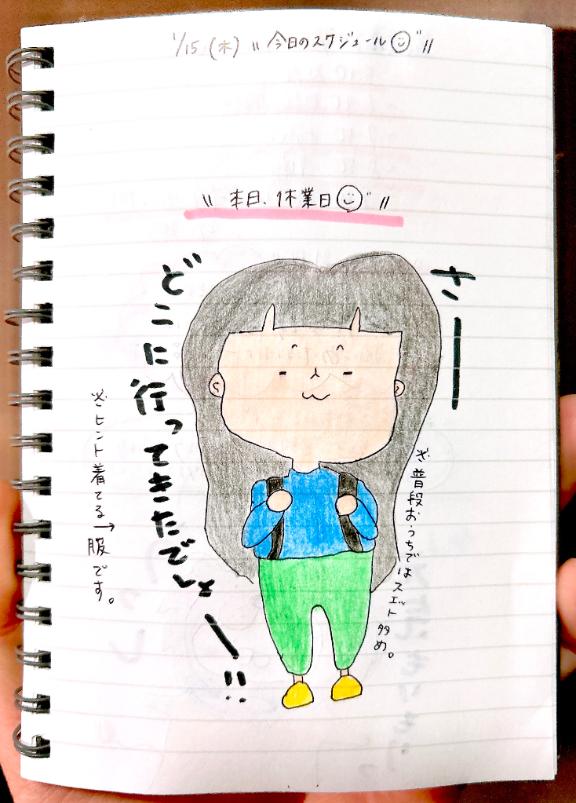 1/15 (木) 〃 今日のスケジュール 〃
〃 本日、休業日 〃
さー
どこに行ってきたでしょー!!
※普段おうちではスエット多め。
※ヒント着てる→服です。